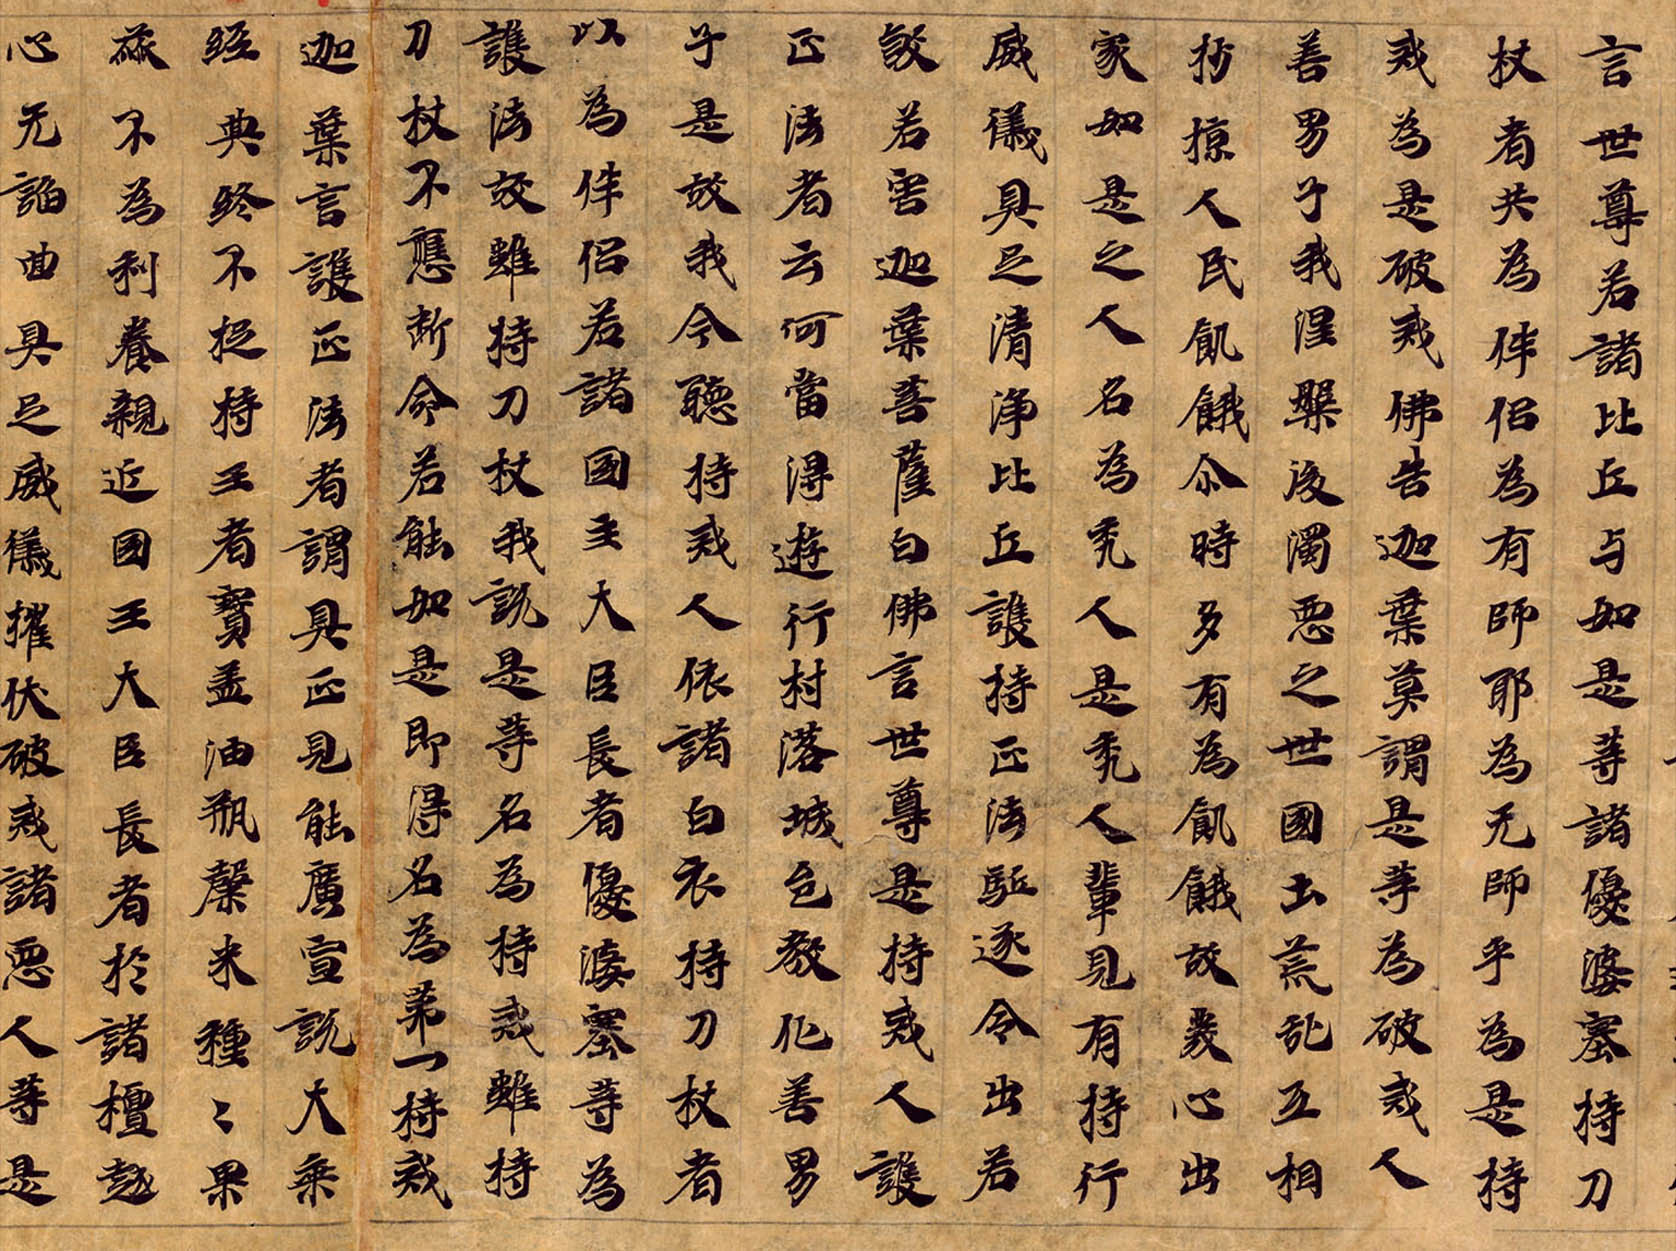 言世尊若諸比丘与如是等諸優婆塞持刀
杖者共為伴侣為有師耶為无師乎為是持
戒為是破戒佛告迦葉莫謂是等為破戒人
善男子我涅槃後濁惡之世國土荒乱互相
抄掠人民飢餓尒時多有為飢餓故發心出
家如是之人名為禿人是禿人輩見有持行
威儀具足清淨比丘護持正法駈逐令出若
煞若害迦葉菩薩白佛言世尊是持戒人護
正法者云何當得遊行村落城邑教化善男
子是故我今聽持戒人依諸白衣持刀杖者
以為伴侣若諸國主大臣長者優婆塞等為
護法故雖持刀杖我說是等名為持戒雖持
刀杖不應断命若能如是即得名為苐一持戒
迦葉言護正法者謂具正見能廣宣說大乘
經典終不捉持王者寶盖油瓶穀米種〻果
蓏不為利養親近國王大臣長者於諸檀越
心无諂曲具足威儀摧伏破戒諸惡人等是